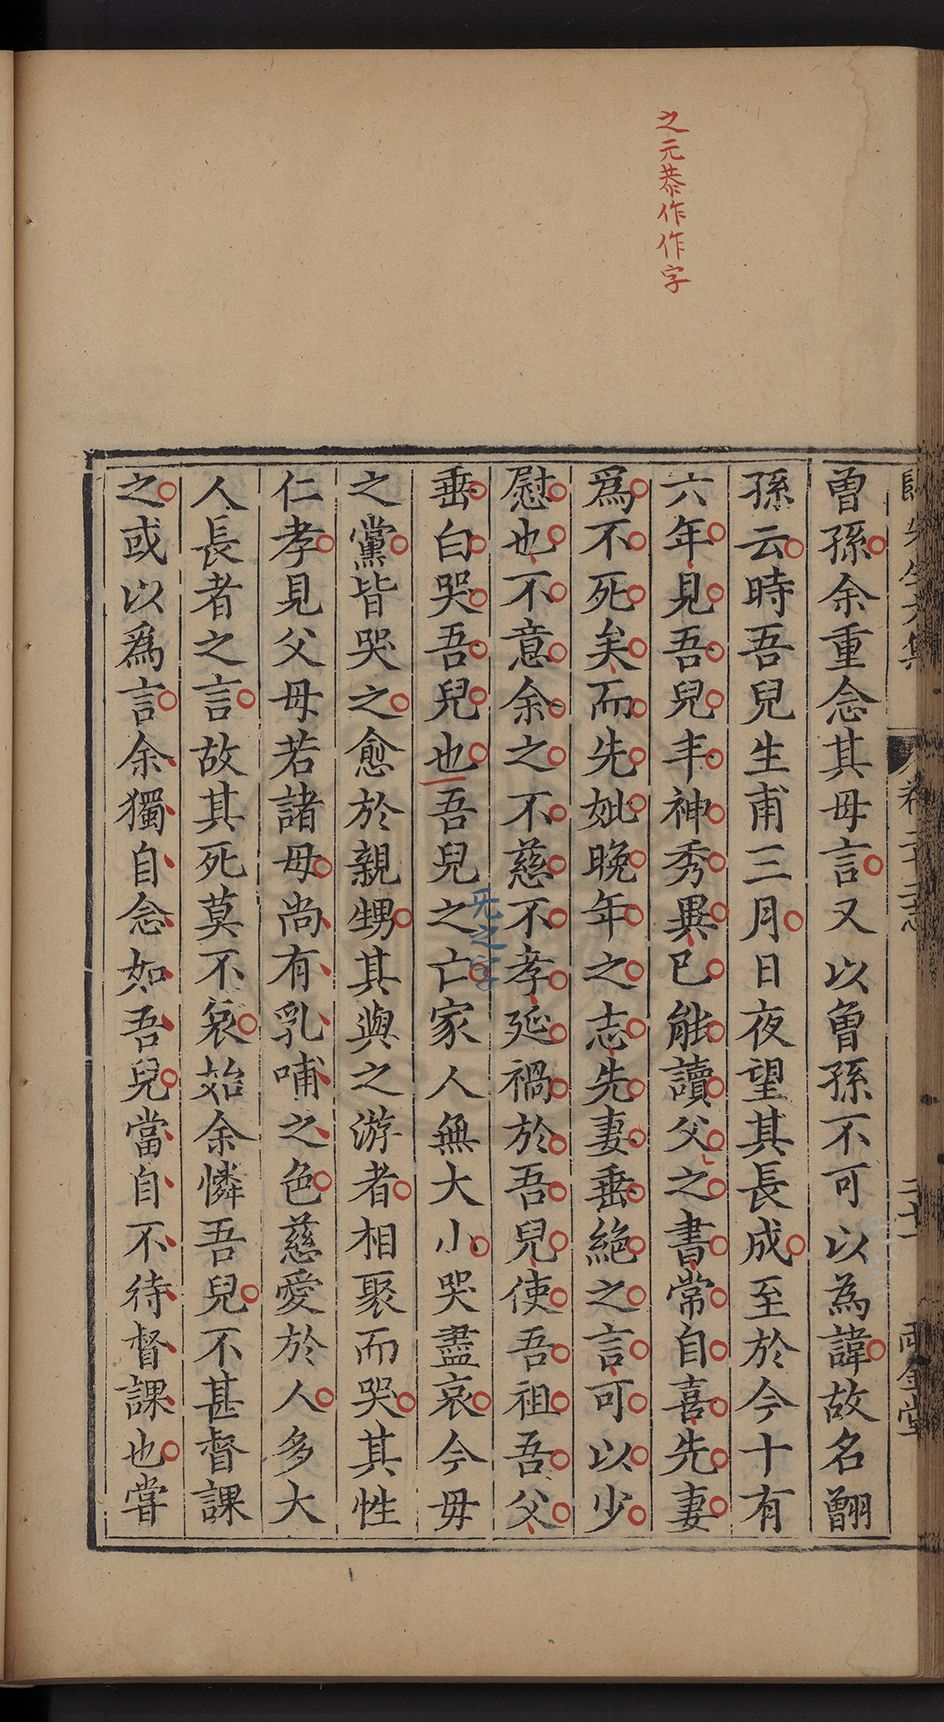 之元恭作作字
曾孫余重念其母言又以曾孫不可以為諱故名䎖
孫云時吾兒生甫三月日夜望其長成至於今十有
六年見吾兒丰神秀異已能讀父之書常自喜先妻
爲不死矣而先妣晚年之志先妻垂絕之言可以少
慰也不意余之不慈不孝延禍於吾兒使吾祖吾父
无之字
垂白哭吾兒也吾兒之亡家人無大小哭盡哀今母
之黨皆哭之愈於親甥其與之游者相聚而哭其性
仁孝見父母若諸母尚有乳哺之色慈愛於人多大
人長者之言故其死莫不哀始余憐吾兒不甚督課
之或以爲言余獨自念如吾兒當自不待督課也嘗